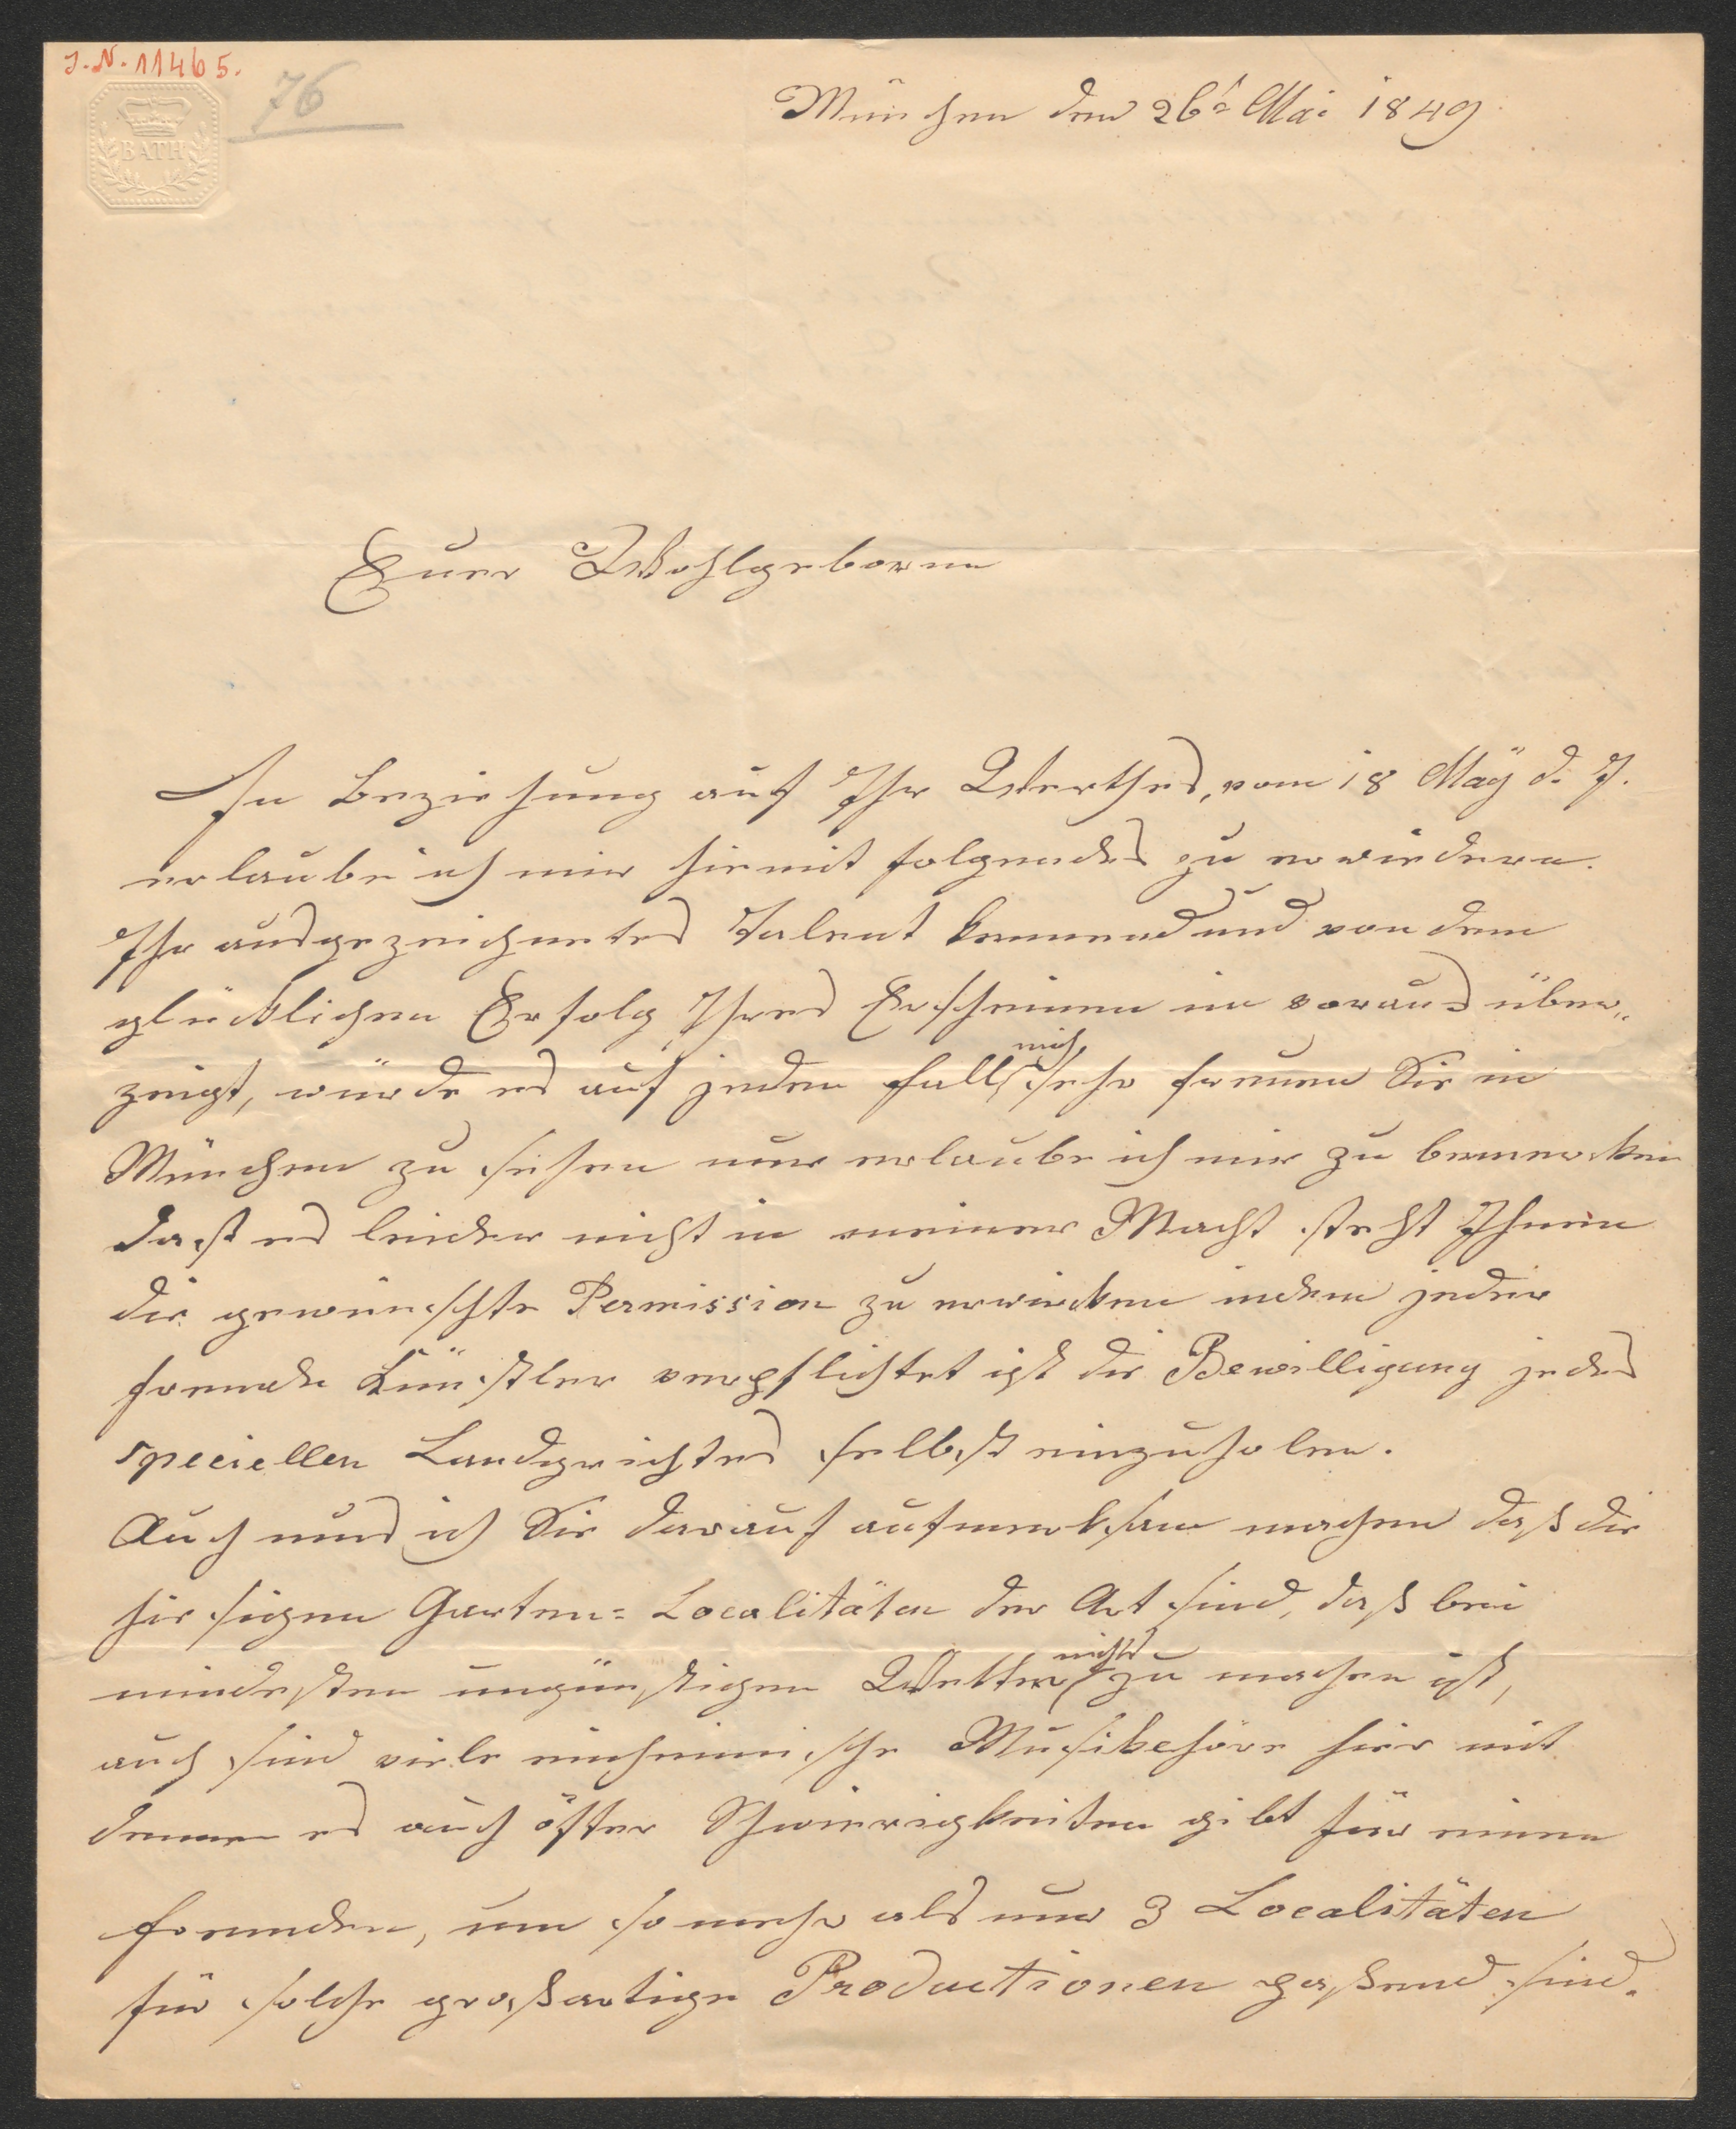 J. N. 11465.
76
BATH
München den 26t Mai 1849
Euer Wohlgeboren
In Beziehung auf Ihr Werthes, vom 18 Maÿ d. J.
erlaube ich mir hiermit folgendes zu erwiedern.
Ihr ausgezeichnetes Talent kennend und von dem
glücklichen Erfolg Ihres Erscheinen im voraus über„
zeigt, würde es auf jeden Fall mich sehr freuen Sie in
München zu sehen nur erlaube ich mir zu bemerken
dast es leider nicht in meiner Macht steht Ihnen
die gewünschte Permission zu erwirken indem jeder
fremde Künstler verpflichtet ist die Bewilligung jedes
speciellen Landgerichtes selbst einzuholen.
Auch mus ich Sie darauf aufmerksam machen daß die
hiesigen Garten= Localitäten der Art sind, daß bei
mindesten ungünstigen Wetter nichts zu machen ist,
auch sind viele einheimische Musikchöre hier mit
denen es auch öfter Schwierigkeiten gibt für einen
Fremden, um so mehr als nur 3 Localitäten
für solche großartige Productionen paßend sind.